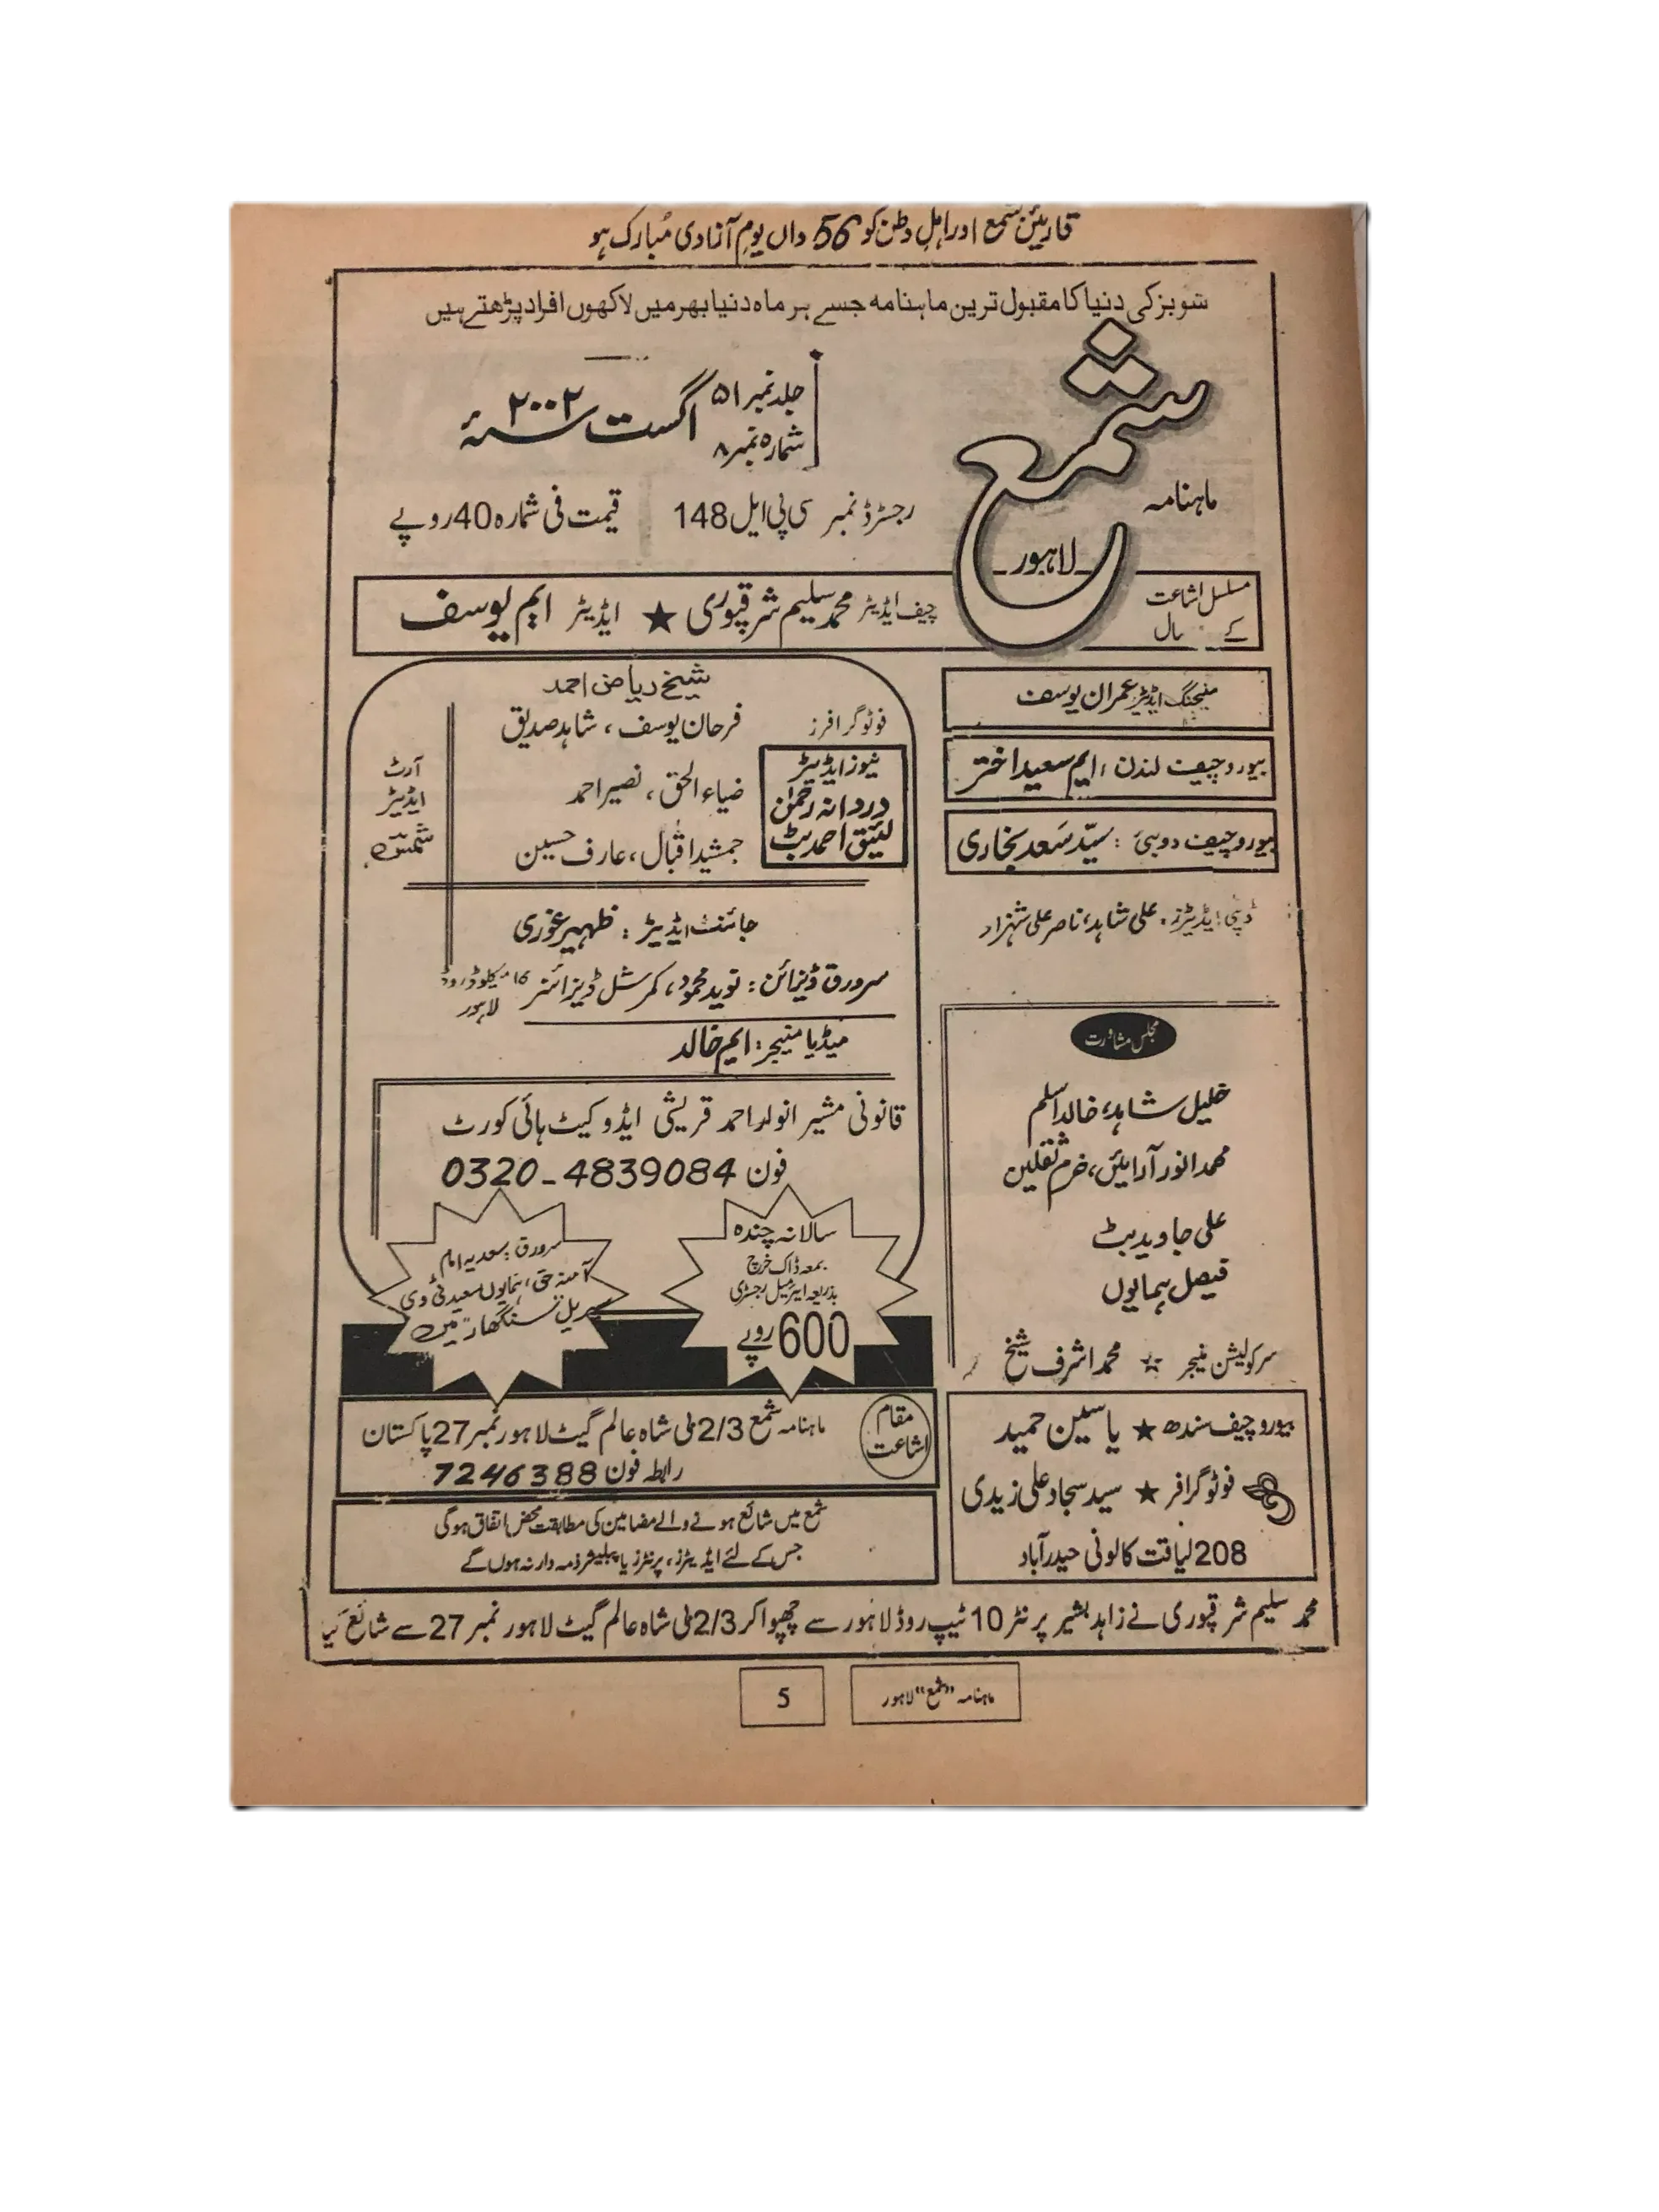 قارئین شمع اور اہل وطن کو 56 واں یوم آزادی مُبارک ہو
شوبز کی دنیا کا مقبول ترین ماہنامہ جسے ہر ماہ دنیا بھر میں لاکھوں افراد پڑھتے ہیں
ماہنامہ
شمع
لاہور
جلد نمبر ۵۱
شمارہ نمبر ۸
اگست ۲۰۰۲ء
رجسٹرڈ نمبر سی پی ایل 148
قیمت فی شمارہ 40 روپے
مسلسل اشاعت
کے سال
چیف ایڈیٹر محمد سلیم شرقپوری ★ ایڈیٹر ایم یوسف
منیجنگ ایڈیٹر عمران یوسف
بیورو چیف لندن : ایم سعید اختر
بیورو چیف دوبئی : سیّد سَعد بخاری
ڈپٹی ایڈیٹرز : علی شاہد، ناصر علی شہزاد
مجلس مشاورت
خلیل شاہد، خالد اسلم
محمد انور آرائیں، خرم ثقلین
علی جاوید بٹ
فیصل ہمایوں
سرکولیشن منیجر ☆ محمد اشرف شیخ
بیورو چیف سندھ ★ یاسین حمید
فوٹو گرافر ★ سید سجاد علی زیدی
208 لیاقت کالونی حیدرآباد
شیخ ریاض احمد
فوٹو گرافرز
فرحان یوسف ، شاہد صدیق
ضیاء الحق ، نصیر احمد
جمشید اقبال ، عارف حسین
نیوز ایڈیٹر
دردانہ رحمٰن
لئیق احمد بٹ
آرٹ
ایڈیٹر
شمسی
جائنٹ ایڈیٹر : ظہیر غوری
سرورق ڈیزائن : نوید محمود، کمرشل ڈیزائنر ۱۶ میکلوڈ روڈ
لاہور
میڈیا منیجر : ایم خالد
قانونی مشیر انوار احمد قریشی ایڈوکیٹ ہائی کورٹ
فون 0320-4839084
سالانہ چندہ
بمعہ ڈاک خرچ
بذریعہ ایئر میل رجسٹری
600 روپے
سرورق : سعدیہ امام
آمنہ حق، ہمایوں سعید ٹی وی
سیریل "سنگھار" میں
مقام
اشاعت
ماہنامہ شمع 2/3 ملی شاہ عالم گیٹ لاہور نمبر 27 پاکستان
رابطہ فون 7246388
شمع میں شائع ہونے والے مضامین کی مطابقت محض اتفاق ہو گی
جس کے لئے ایڈیٹرز ، پرنٹرز یا پبلیشر ذمہ دار نہ ہوں گے
محمد سلیم شرقپوری نے زاہد بشیر پرنٹر 10 ٹیپ روڈ لاہور سے چھپوا کر 2/3 ملی شاہ عالم گیٹ لاہور نمبر 27 سے شائع کیا
ماہنامہ "شمع" لاہور
5